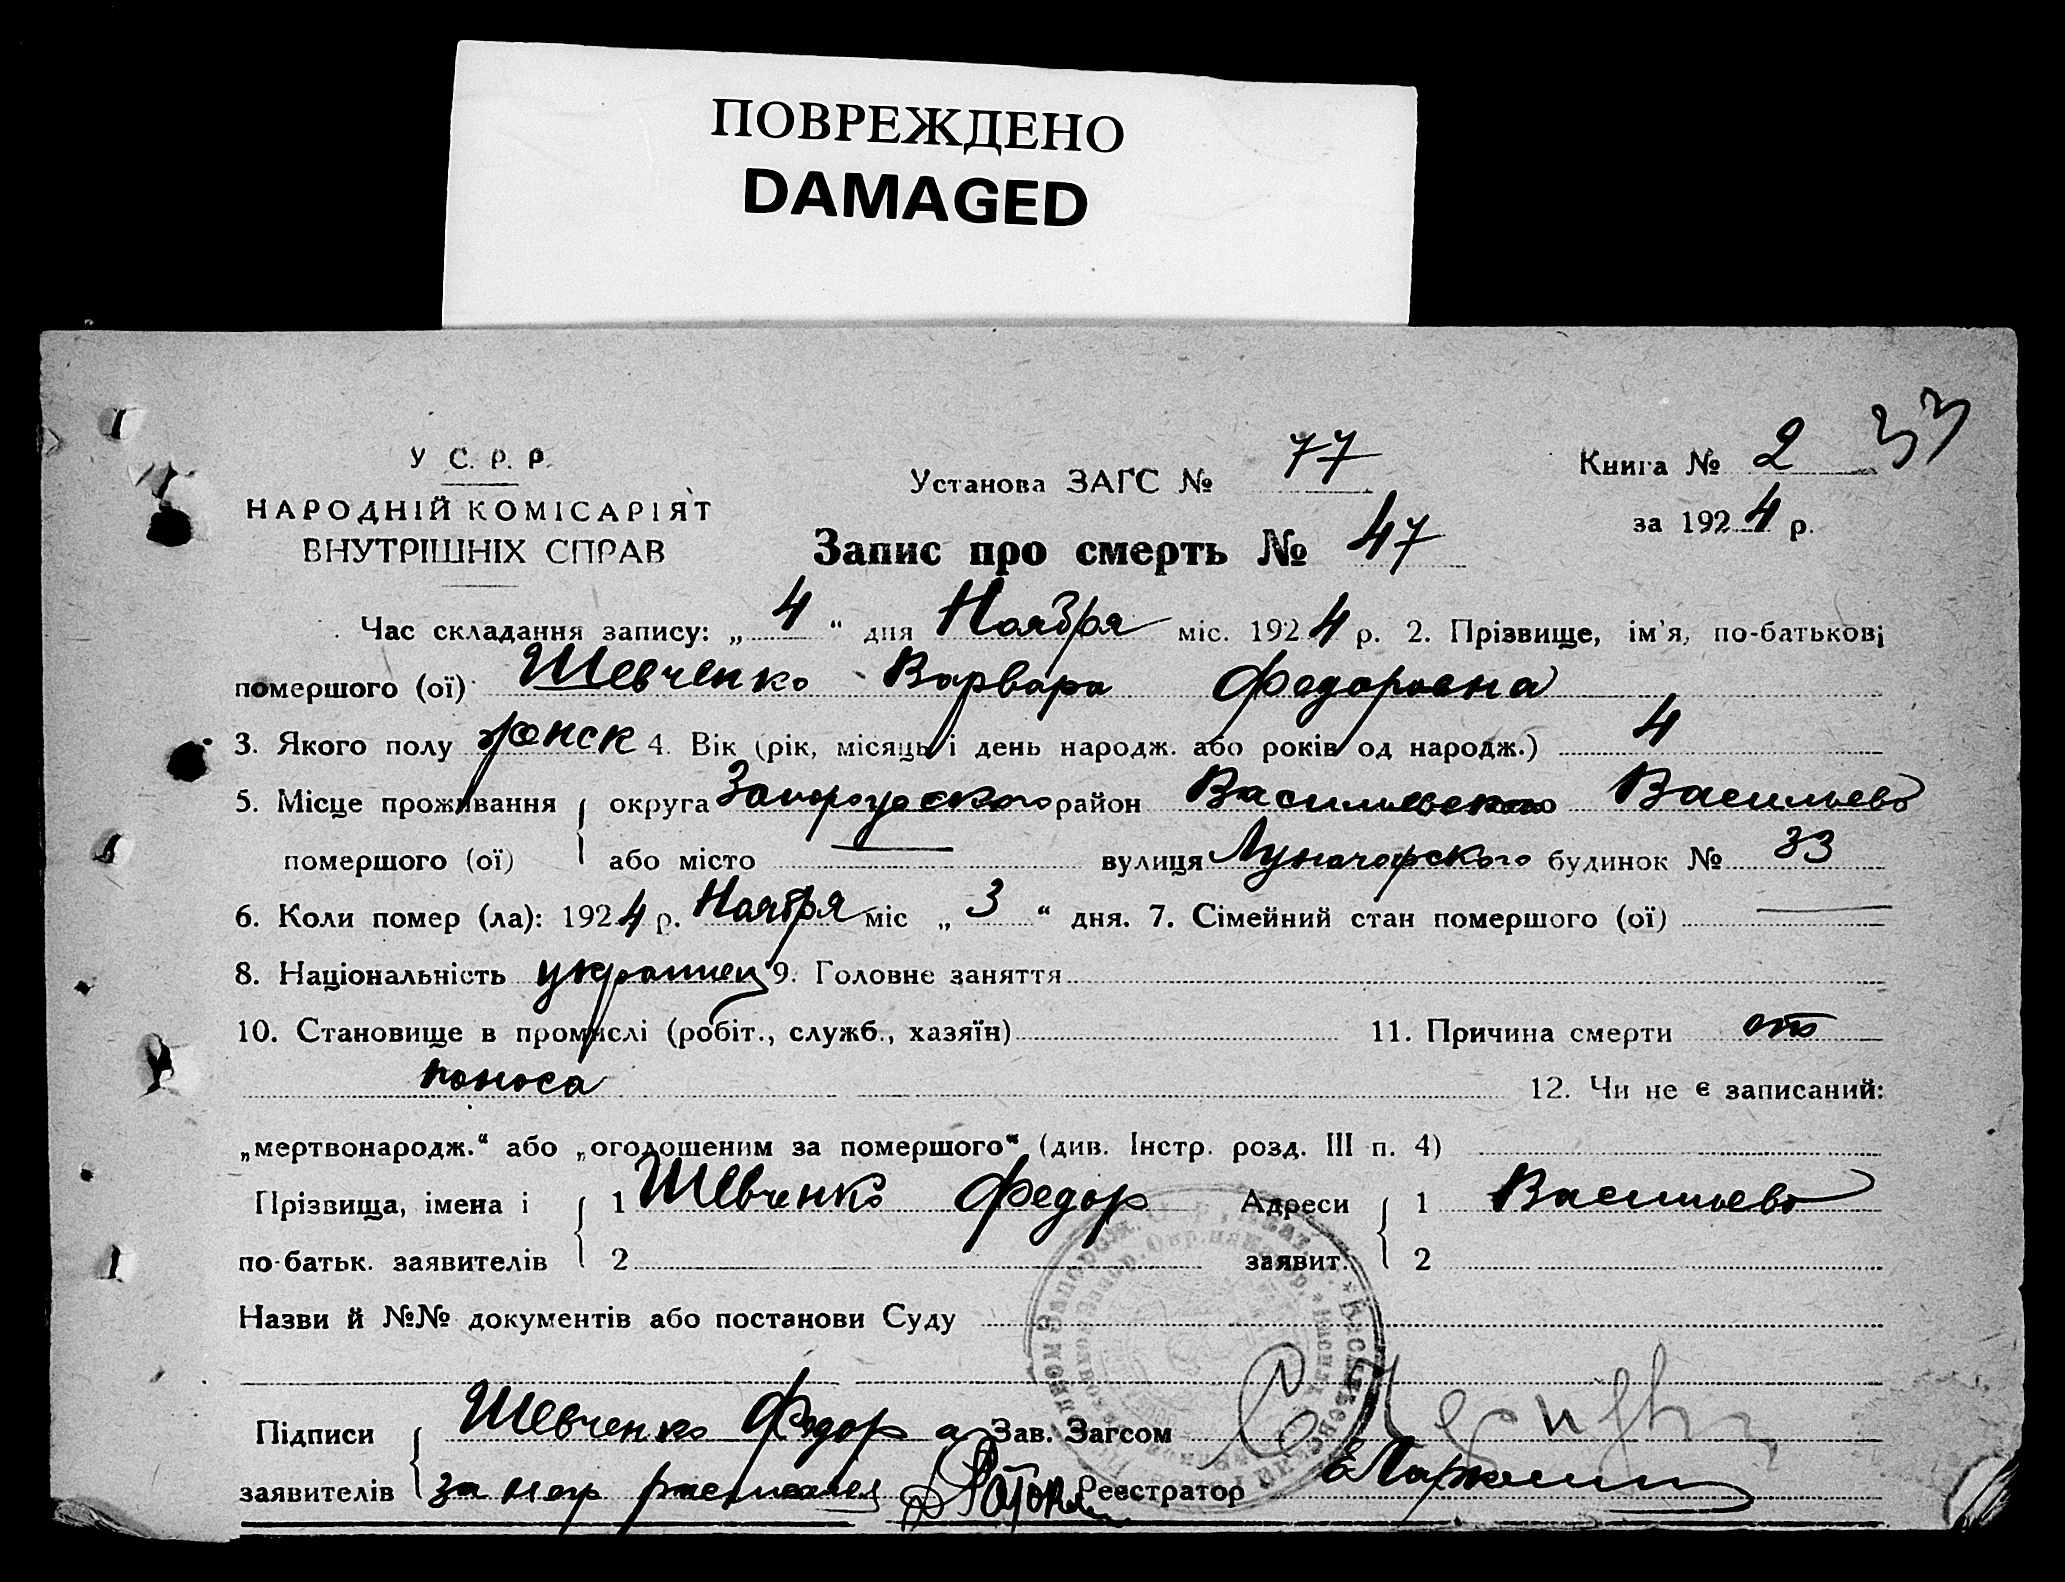 ПОВРЕЖДЕНО
DAMAGED
33
У С. Р. Р.
НАРОДНІЙ КОМІСАРІЯТ
ВНУТРІШНІХ СПРАВ
Установа ЗАГС № 77
Книга № 2
за 1924 р.
Запис про смерть № 47
Час складання запису: „ 4 “ дня Ноября міс. 1924 р. 2. Прізвище, ім'я, по-батькові
помершого (ої) Шевченко Варвара Федоровна
3. Якого полу женск 4. Вік (рік, місяць і день народж. або років од народж.) 4
5. Місце проживання округа Запорожского район Васильевского Васильево
помершого (ої) або місто — вулиця Луначарского будинок № 33
6. Коли помер (ла): 1924 р. Ноября міс „ 3 “ дня. 7. Сімейний стан помершого (ої) —
8. Національність украинец 9. Головне заняття
10. Становище в промислі (робіт., служб., хазяїн) 11. Причина смерти от
поноса 12. Чи не є записаний:
„мертвонародж.“ або „оголошеним за помершого“ (див. Інстр. розд. III п. 4)
Прізвища, імена і 1 Шевченко Федор Адреси 1 Васильево
по-батьк. заявителів 2 заявит. 2
Назви й №№ документів або постанови Суду
Підписи Шевченко Федор а Зав. Загсом
заявителів за негр расписался Реєстратор